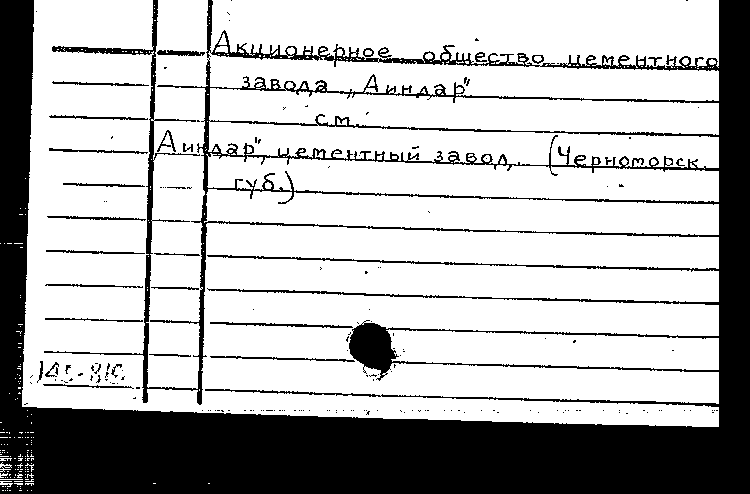 Акционерное общество цементного
завода „Аиндар"
см.
Аиндар", цементный завод. (Черноморск.
губ.)